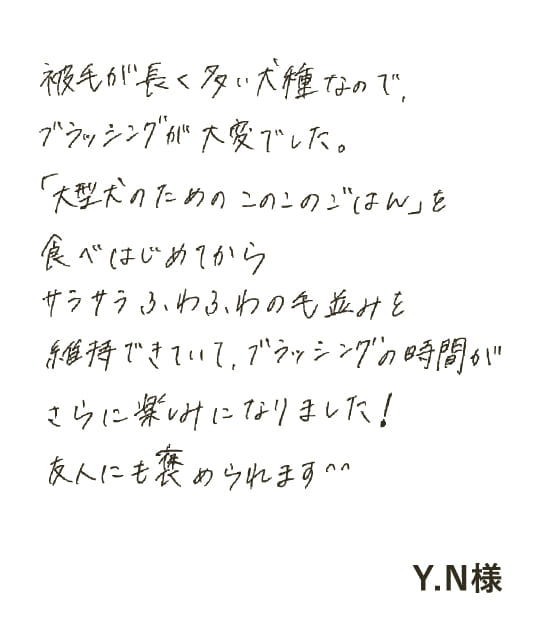 被毛が長く多い犬種なので、
ブラッシングが大変でした。
「大型犬のためのこのこのごはん」を
食べはじめてから
サラサラふわふわの毛並みを
維持できていて、ブラッシングの時間が
さらに楽しみになりました!
友人にも褒められます^^
Y.N様